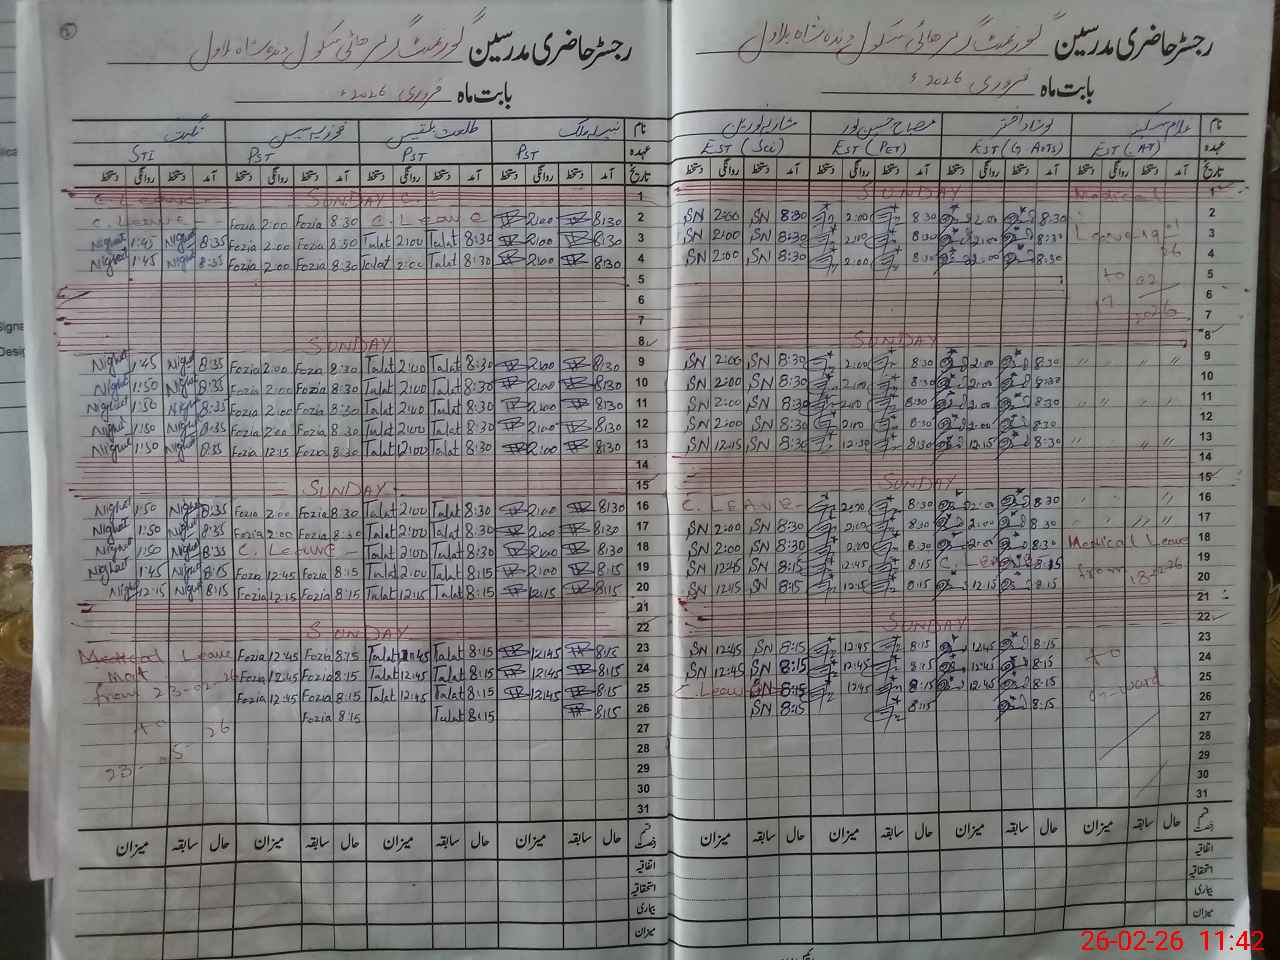 رجسٹر حاضری مدرسین گورنمنٹ گرلز ہائی سکول دندہ شاہ بلاول
بابت ماہ فروری 2026ء
نام غلام سکینہ نوشاد اختر مصباح حسن نور شازیہ نورین
عہدہ EST (AT) EST (G Arts) EST (PET) EST (Sci)
تاریخ آمد دستخط روانگی دستخط آمد دستخط روانگی دستخط آمد دستخط روانگی دستخط آمد دستخط روانگی دستخط
1 SUNDAY Medical
2 SN 2:00 SN 8:30 2:00 8:30 2:00 8:30
3 SN 2:00 SN 8:30 2:00 8:30 2:00 8:30 Leave 19 01
4 SN 2:00 SN 8:30 2:00 8:30 2:00 8:30 26
5 to 02
6 17
7 2026
8 SUNDAY
9 SN 2:00 SN 8:30 2:00 8:30 2:00 8:30 " " " "
10 SN 2:00 SN 8:30 2:00 8:30 2:00 8:30
11 SN 2:00 SN 8:30 2:00 8:30 2:00 8:30 " " " "
12 SN 2:00 SN 8:30 2:00 8:30 2:00 8:30
13 SN 12:15 SN 8:30 12:30 8:30 12:15 8:30 " " "
14
15 SUNDAY
16 C. LEAVE 2:00 8:30 2:00 8:30 " " "
17 SN 2:00 SN 8:30 2:00 8:30 2:00 8:30 " " " "
18 SN 2:00 SN 8:30 2:00 8:30 2:00 8:30 Medical Leave
19 SN 12:45 SN 8:15 12:45 8:15 C. LEAVE 8:15 from 18-2-26
20 SN 12:15 SN 8:15 12:15 8:15 12:15 8:15
21
22 SUNDAY
23 SN 12:45 SN 8:15 12:45 8:15 12:45 8:15 to
24 SN 12:45 SN 8:15 12:45 8:15 12:45 8:15
25 C. Leave SN 8:15 12:45 8:15 12:45 8:15 on-ward
26 SN 8:15 8:15 8:15
27
28
29
30
31
قسم رخصت حال سابقہ میزان حال سابقہ میزان حال سابقہ میزان حال سابقہ میزان
اتفاقیہ
استحقاقیہ
بیماری
میزان
رجسٹر حاضری مدرسین گورنمنٹ گرلز ہائی سکول دندہ شاہ بلاول
بابت ماہ فروری 2026ء
نام طلعت بلقیس فوزیہ نگہت
عہدہ PST PST PST STI
تاریخ آمد دستخط روانگی دستخط آمد دستخط روانگی دستخط آمد دستخط روانگی دستخط آمد دستخط روانگی دستخط
1 C. Leave SUNDAY C.
2 C. Leave Fozia 2:00 Fozia 8:30 C. Leave 2:00 8:30
3 Nighat 1:45 Nighat 8:35 Fozia 2:00 Fozia 8:30 Talat 2:00 Talat 8:30 2:00 8:30
4 Nighat 1:45 Nighat 8:35 Fozia 2:00 Fozia 8:30 Talat 2:00 Talat 8:30 2:00 8:30
5
6
7
8 SUNDAY
9 Nighat 1:45 Nighat 8:35 Fozia 2:00 Fozia 8:30 Talat 2:00 Talat 8:30 2:00 8:30
10 Nighat 1:50 Nighat 8:35 Fozia 2:00 Fozia 8:30 Talat 2:00 Talat 8:30 2:00 8:30
11 Nighat 1:50 Nighat 8:35 Fozia 2:00 Fozia 8:30 Talat 2:00 Talat 8:30 2:00 8:30
12 Nighat 1:50 Nighat 8:35 Fozia 2:00 Fozia 8:30 Talat 2:00 Talat 8:30 2:00 8:30
13 Nighat 1:50 Nighat 8:35 Fozia 12:15 Fozia 8:30 Talat 2:00 Talat 8:30 2:00 8:30
14
15 SUNDAY
16 Nighat 1:50 Nighat 8:35 Fozia 2:00 Fozia 8:30 Talat 2:00 Talat 8:30 2:00 8:30
17 Nighat 1:50 Nighat 8:35 Fozia 2:00 Fozia 8:30 Talat 2:00 Talat 8:30 2:00 8:30
18 Nighat 1:50 Nighat 8:35 C. Leave Talat 2:00 Talat 8:30 2:00 8:30
19 Nighat 1:45 Nighat 8:15 Fozia 12:45 Fozia 8:15 Talat 2:00 Talat 8:15 2:00 8:15
20 Nighat 12:15 Nighat 8:15 Fozia 12:15 Fozia 8:15 Talat 12:15 Talat 8:15 12:15 8:15
21
22 SUNDAY
23 Medical Leave Fozia 12:45 Fozia 8:15 Talat 12:45 Talat 8:15 12:45 8:15
24 Mat Fozia 12:45 Fozia 8:15 Talat 12:45 Talat 8:15 12:45 8:15
25 from 23-02-26 Fozia 12:45 Fozia 8:15 Talat 12:45 Talat 8:15 12:45 8:15
26 Fozia 8:15 Talat 8:15 8:15
27 to 26
28 23-05
29
30
31
قسم رخصت حال سابقہ میزان حال سابقہ میزان حال سابقہ میزان حال سابقہ میزان
اتفاقیہ
استحقاقیہ
بیماری
میزان
26-02-26 11:42